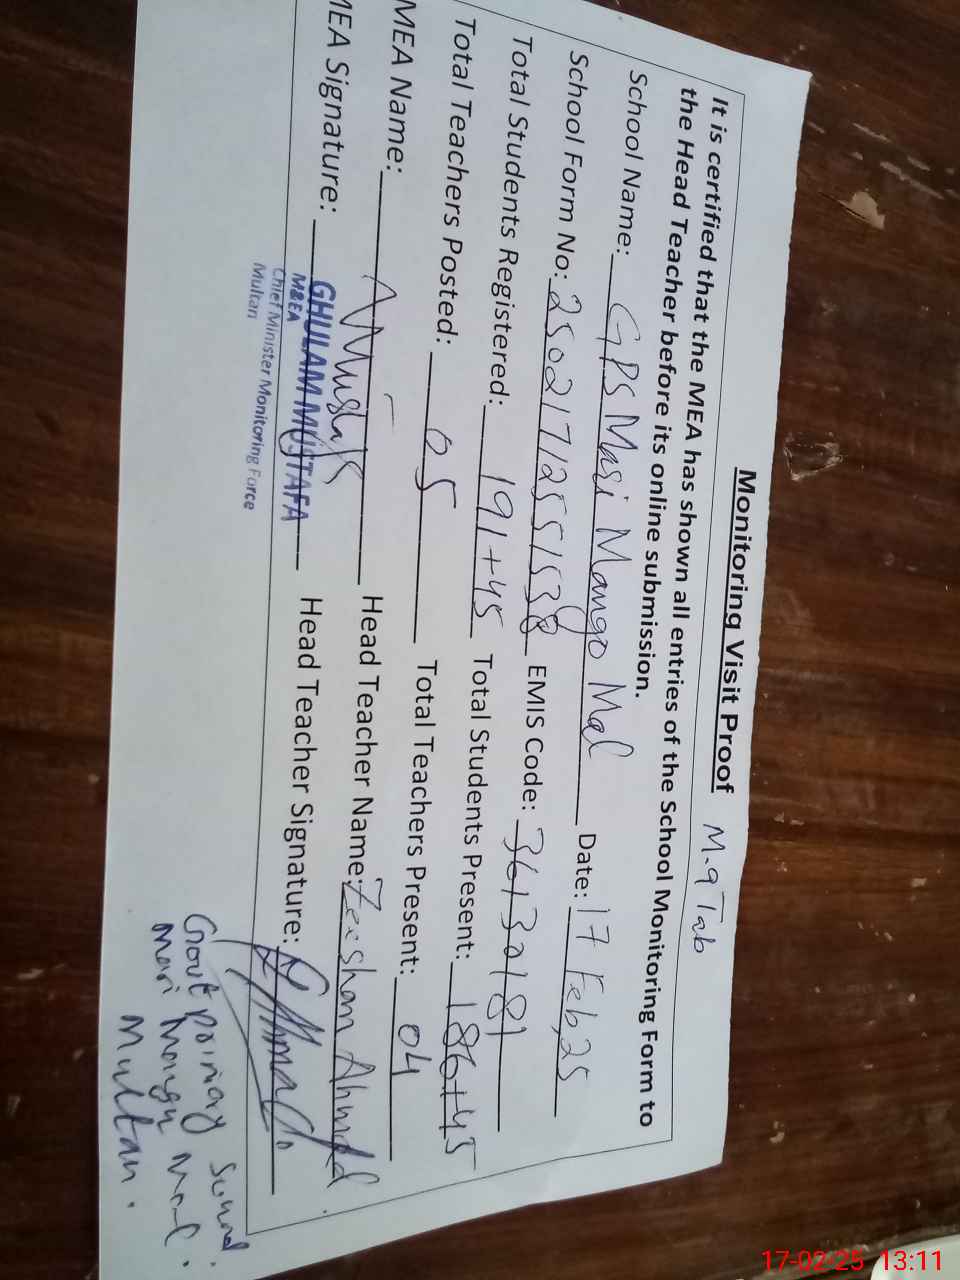 Monitoring Visit Proof M.9 Tab
It is certified that the MEA has shown all entries of the School Monitoring Form to
the Head Teacher before its online submission.
School Name: GPS Mari Mango Mal Date: 17 Feb, 25
School Form No: 25021712551538 EMIS Code: 36130181
Total Students Registered: 191+45 Total Students Present: 186+45
Total Teachers Posted: 05 Total Teachers Present: 04
MEA Name: Head Teacher Name: Zeeshan Ahmad
MEA Signature: GHULAM MUSTAFA Head Teacher Signature:
M&EA
Chief Minister Monitoring Force
Multan
Govt primary
Mari Mangu Mal.
Multan.
17-02-25 13:11